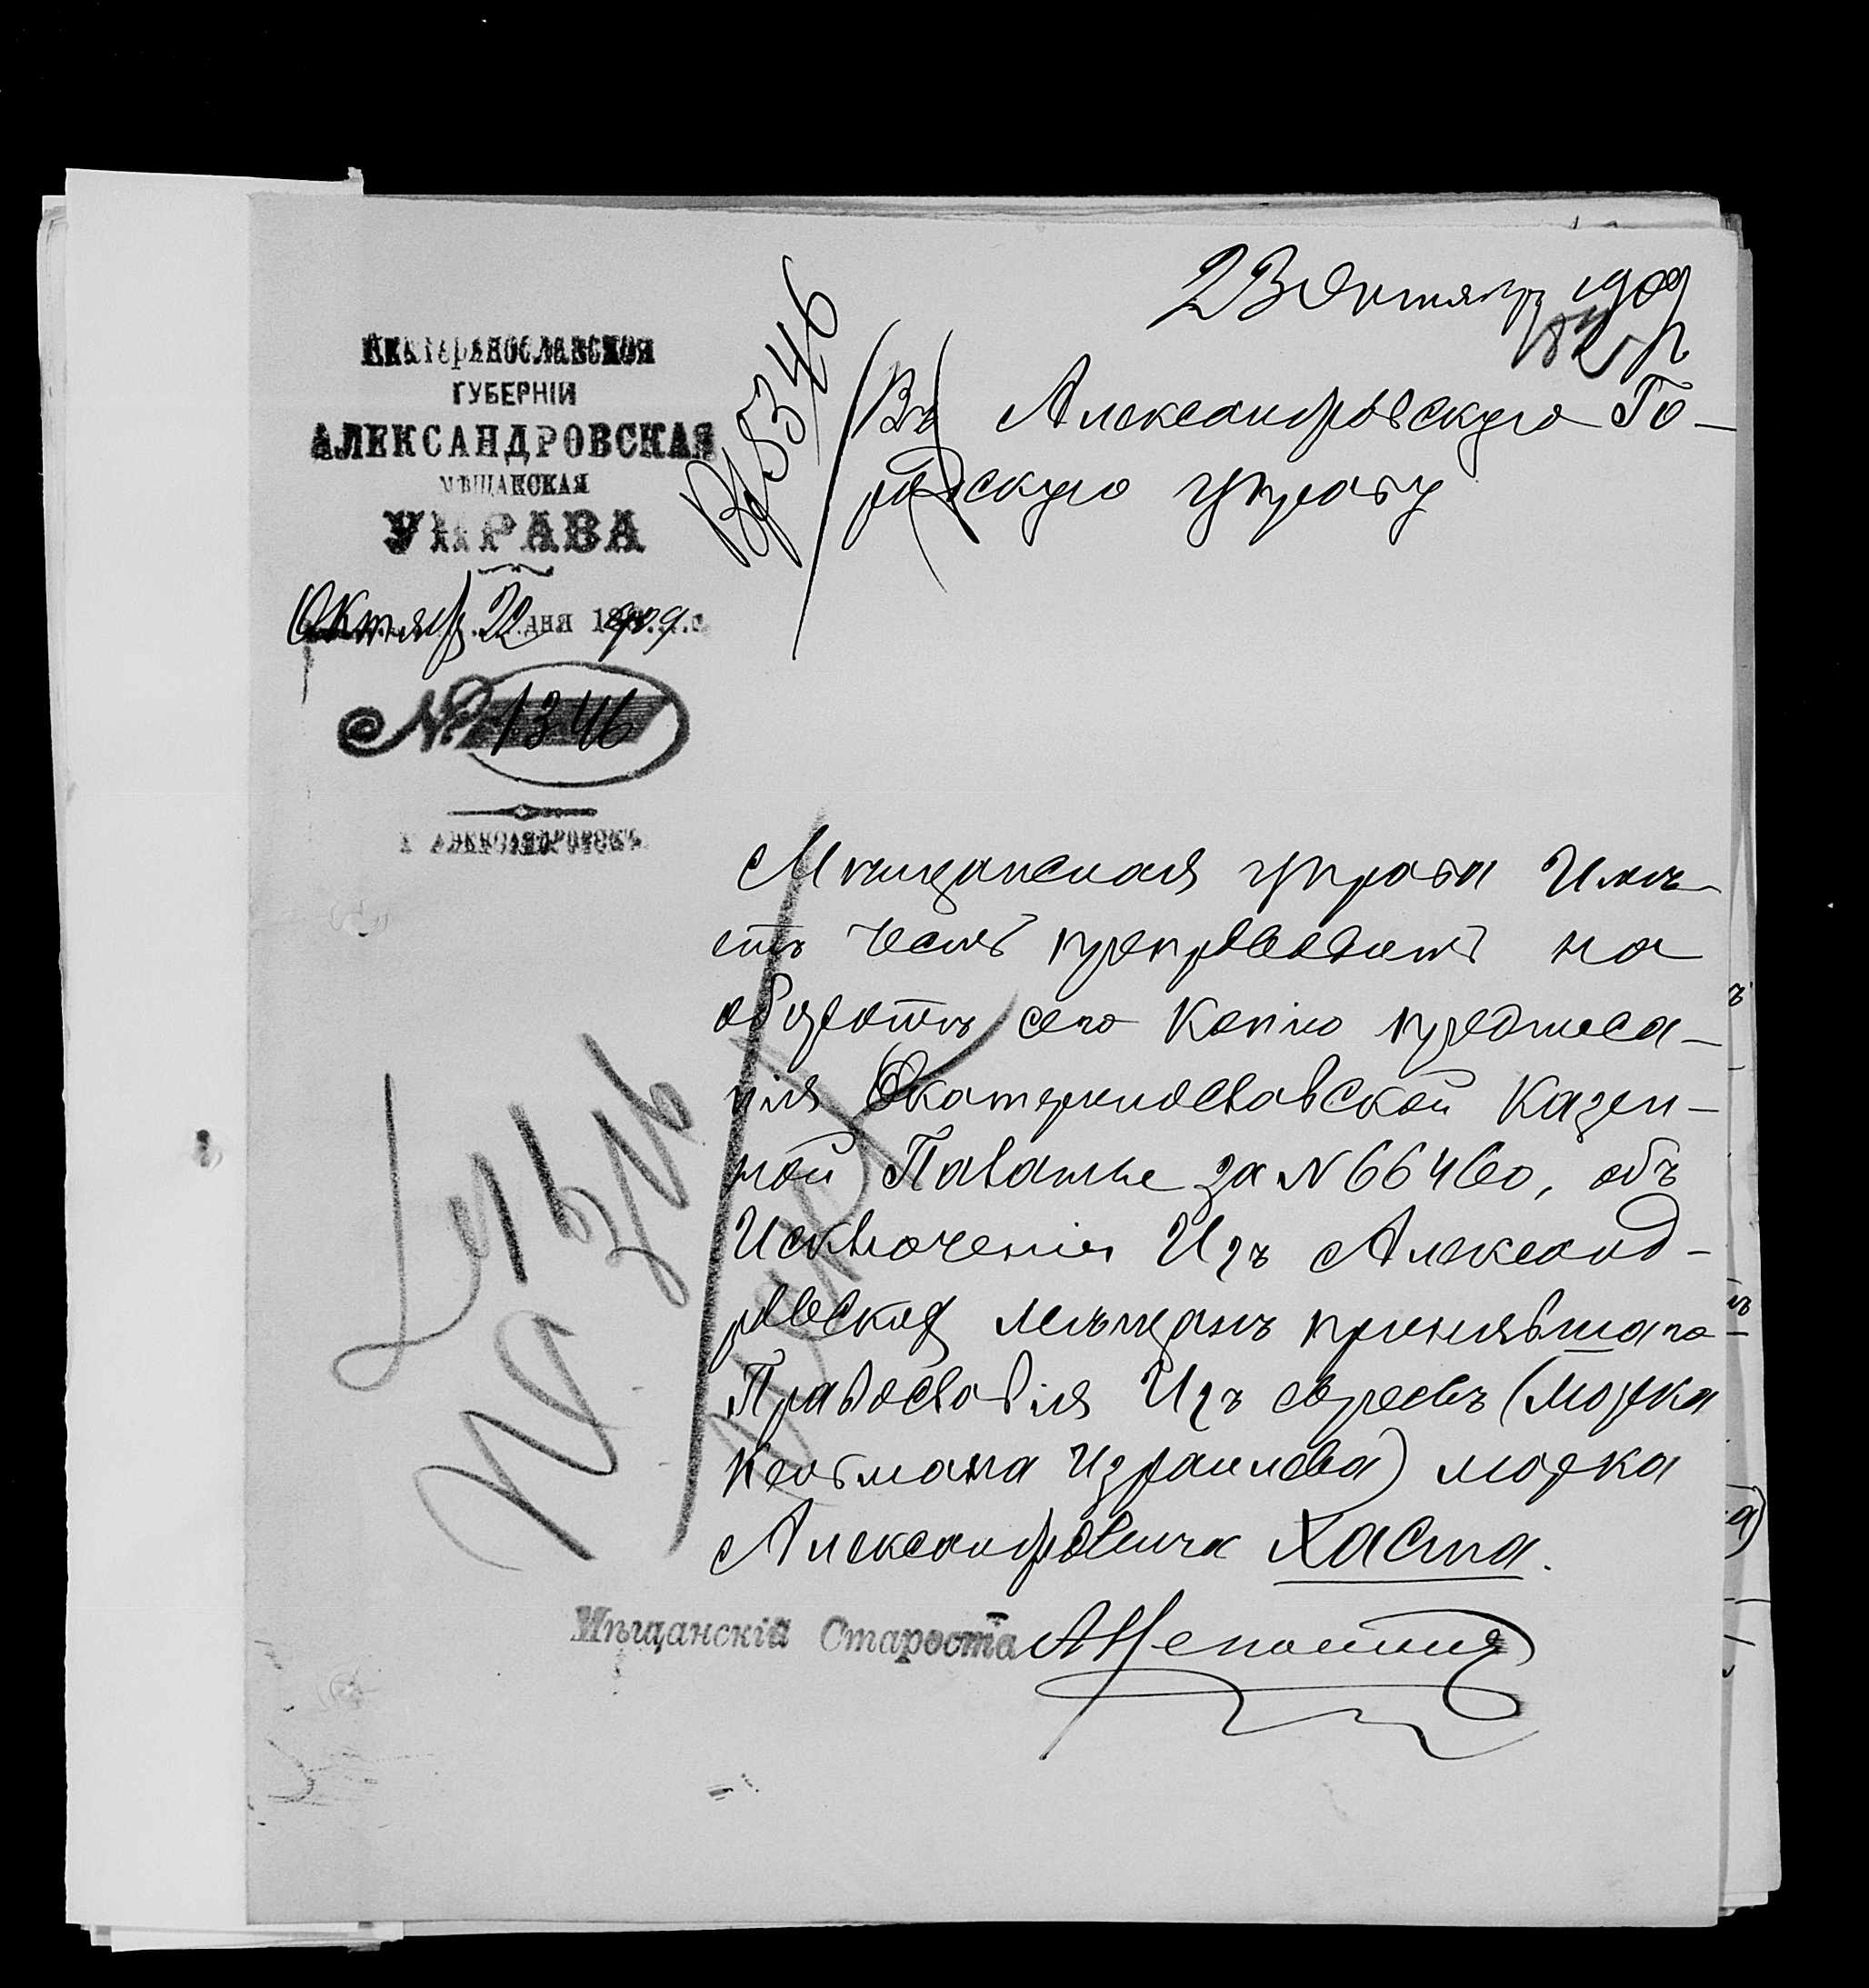 23 Октября 1909
Екатеринославской
ГУБЕРНІИ
АЛЕКСАНДРОВСКАЯ
МѢЩАНСКАЯ
УПРАВА
Октяб 22 дня 1909
№ 1346
Г. АЛЕКСАНДРОВСКЪ
Вх 5346
Въ Александровскую Го-
родскую управу
Мѣщанская управа Имѣ-
етъ честь препроводить на
оборотѣ сего копію предписа-
нія Екатеринославской Казен-
ной Палаты за № 66460, объ
Исключеніи Изъ Александ-
ровскихъ мѣщанъ принявшаго
Православія Изъ евреевъ (мозека
Кельмана Израилева) мозека
Александровича Хаста.
Мѣщанскій Староста